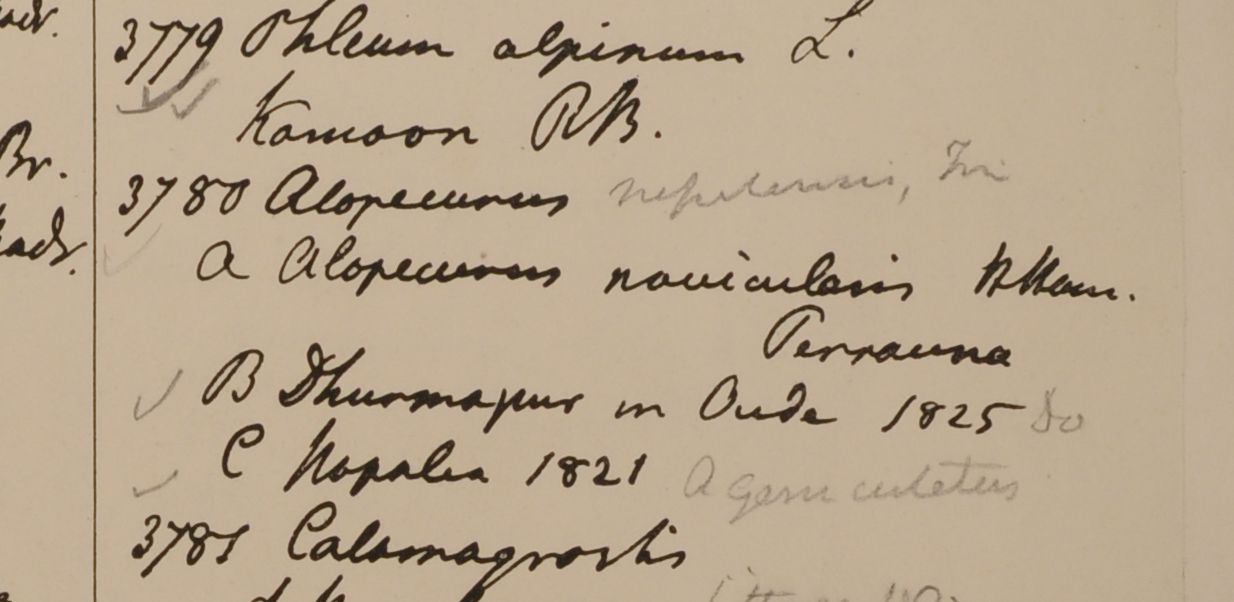 adr.
3779 Phleum alpinum L.
Kamoon RB.
Br.
3780 Alopecurus nepalensis, Tri
adr.
a Alopecurus navicularis HHam.
Perrauna
B Dhurmapur in Oude 1825 Do
C Napalia 1821 A geniculatus
3781 Calamagrostis